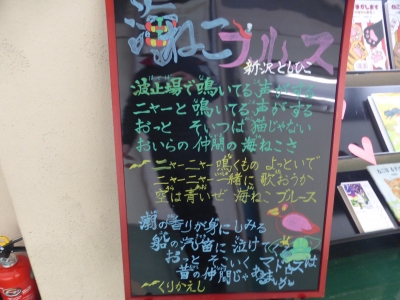 海ねこブルース
新沢としひこ
波止場で鳴いてる声がする
ニャーと鳴いてる声がする
おっと そいつは猫じゃない
おいらの仲間の海ねこさ
ニャーニャー鳴くもの よっといで
ニャーニャー一緒に歌おうか
空は青いぜ 海ねこブルース
潮の香りが身にしみる
船の汽笛に泣けてくる
おっと そこいく マドロスは
昔の仲間じゃあるまいか
くりかえし